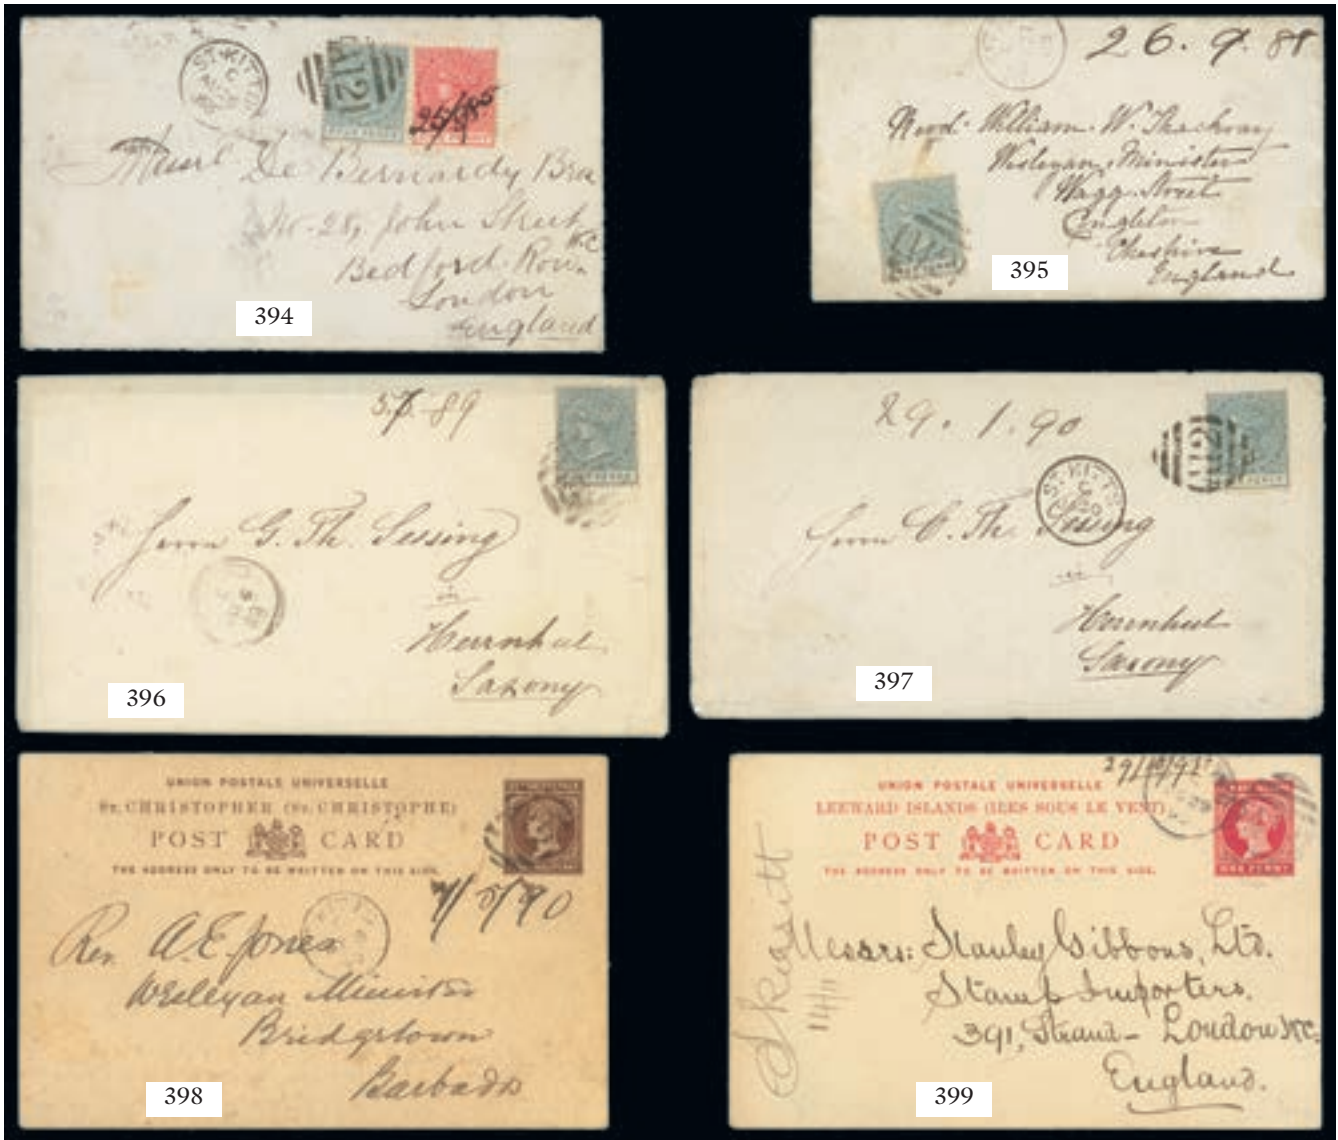 ST. KITTS
C
A12
25/8/85
De Bernardy Bros
No. 28, John Street
W.C.
Bedford Row
London
England
394
26. 9. 88
Revd. William. W. Thackray
Wesleyan Minister
Wagg Street
Congleton
Cheshire
England
395
89
Herrn G. Th. Lessing
in
Herrnhut
Saxony
396
29. 1. 90
A12
ST. KITTS
C
Herrn C. Th. Lessing
in
Herrnhut
Saxony
397
UNION POSTALE UNIVERSELLE
ST. CHRISTOPHER (ST. CHRISTOPHE)
POST CARD
THE ADDRESS ONLY TO BE WRITTEN ON THIS SIDE.
Rev. A. E. Jones
Wesleyan Minister
Bridgetown
Barbados
398
UNION POSTALE UNIVERSELLE
LEEWARD ISLANDS (ILES SOUS LE VENT)
POST CARD
THE ADDRESS ONLY TO BE WRITTEN ON THIS SIDE.
ONE PENNY
Messrs: Stanley Gibbons, Ltd.
Stamp Importers.
391, Strand - London W.C.
England.
399